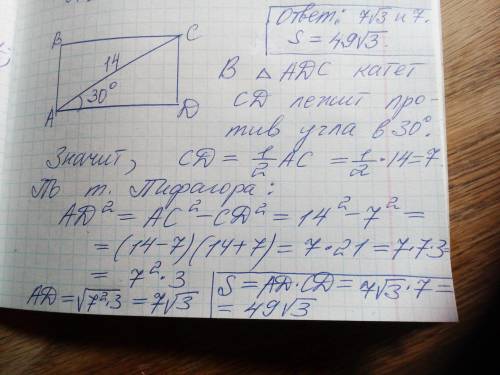 Ответ: 7√3 и 7.
S = 49√3.
B
C
14
30°
A
D
В △ ADC катет
CD лежит про-
тив угла в 30°.
Значит, CD = 1/2 AC = 1/2 · 14 = 7
По т. Пифагора:
AD² = AC² - CD² = 14² - 7² =
= (14-7)(14+7) = 7 · 21 = 7·7·3=
= 7² · 3
AD = √7²·3 = 7√3
S = AD · CD = 7√3 · 7 =
= 49√3